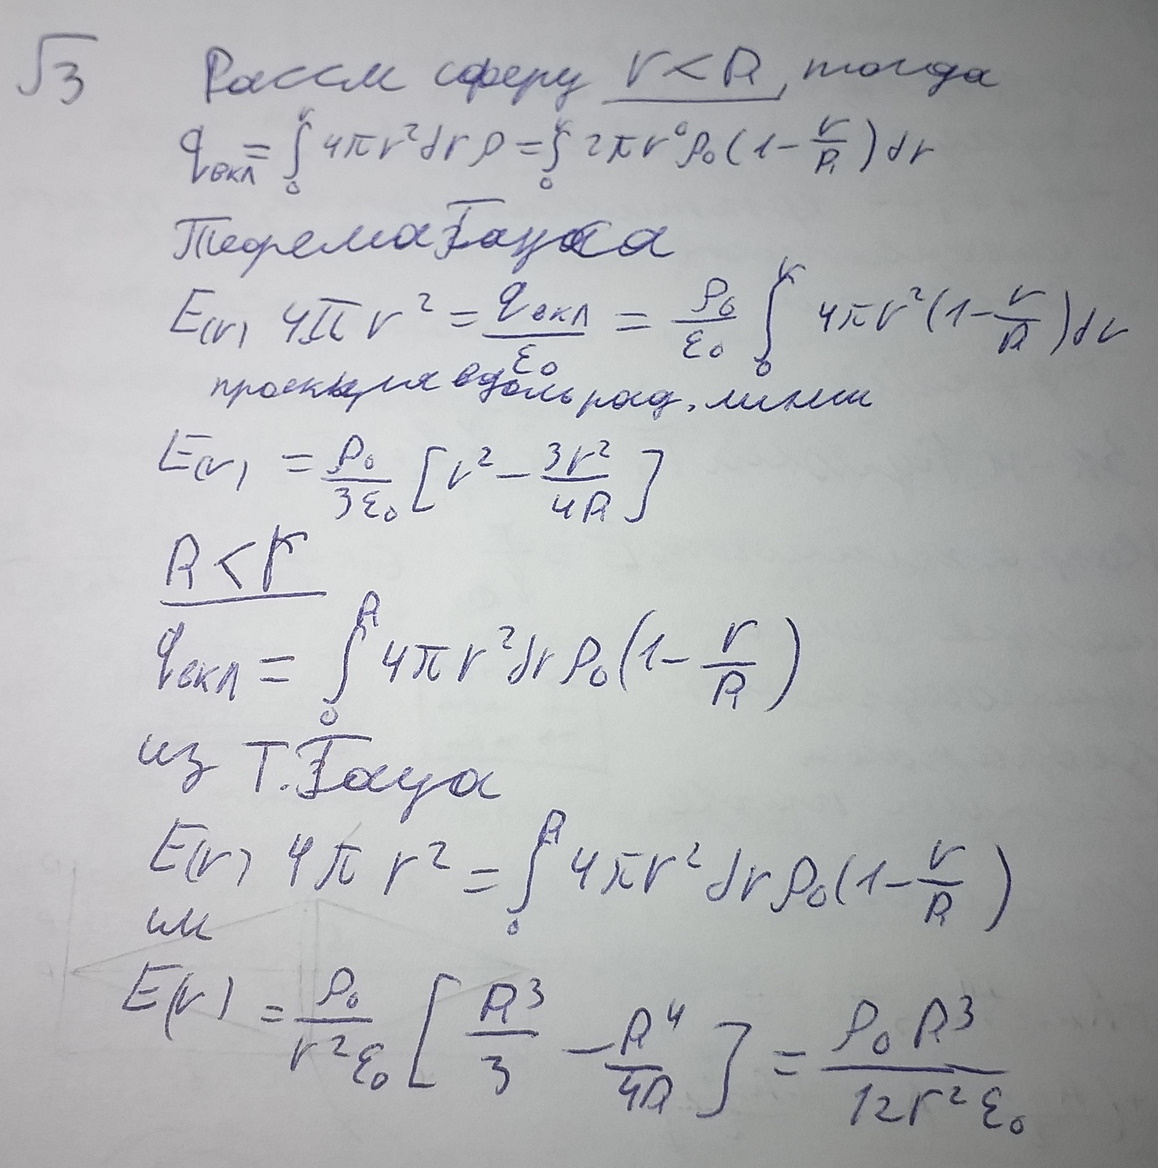 √3 Рассм сферу r < R, тогда
q вкл = ∫₀^r 4πr²drρ = ∫₀^r 2πr⁰ρ₀(1 - r/R)dr
Теорема Гауса
E(r) 4πr² = q вкл/ε₀ = ρ₀/ε₀ ∫₀^r 4πr²(1 - r/R)dr
проекция вдоль рад. линии
E(r) = ρ₀/3ε₀ [r² - 3r²/4R]
R < r
q вкл = ∫₀^R 4πr²drρ₀(1 - r/R)
из Т. Гауса
E(r) 4πr² = ∫₀^R 4πr²drρ₀(1 - r/R)
E(r) = ρ₀/r²ε₀ [R³/3 - R⁴/4R] = ρ₀R³/12r²ε₀